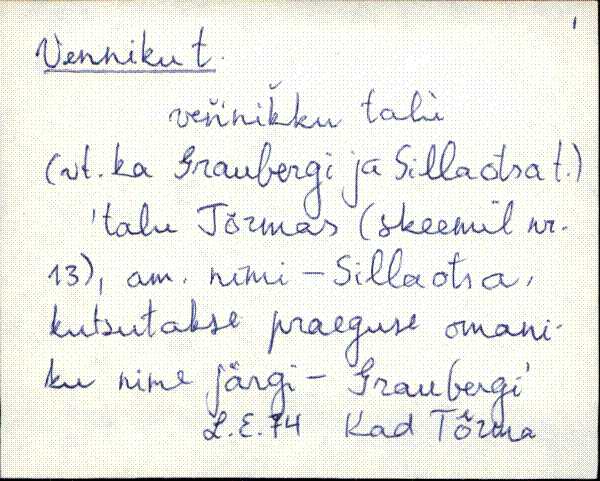 Venniku t.
veńnikku talu
(vt. ka Graubergi ja Sillaotsa t.)
'talu Tõrmas (skeemil nr.
13), am. nimi – Sillaotsa,
kutsutakse praeguse omani-
ku nime järgi – Graubergi'
L.E. 74 Kad Tõrma